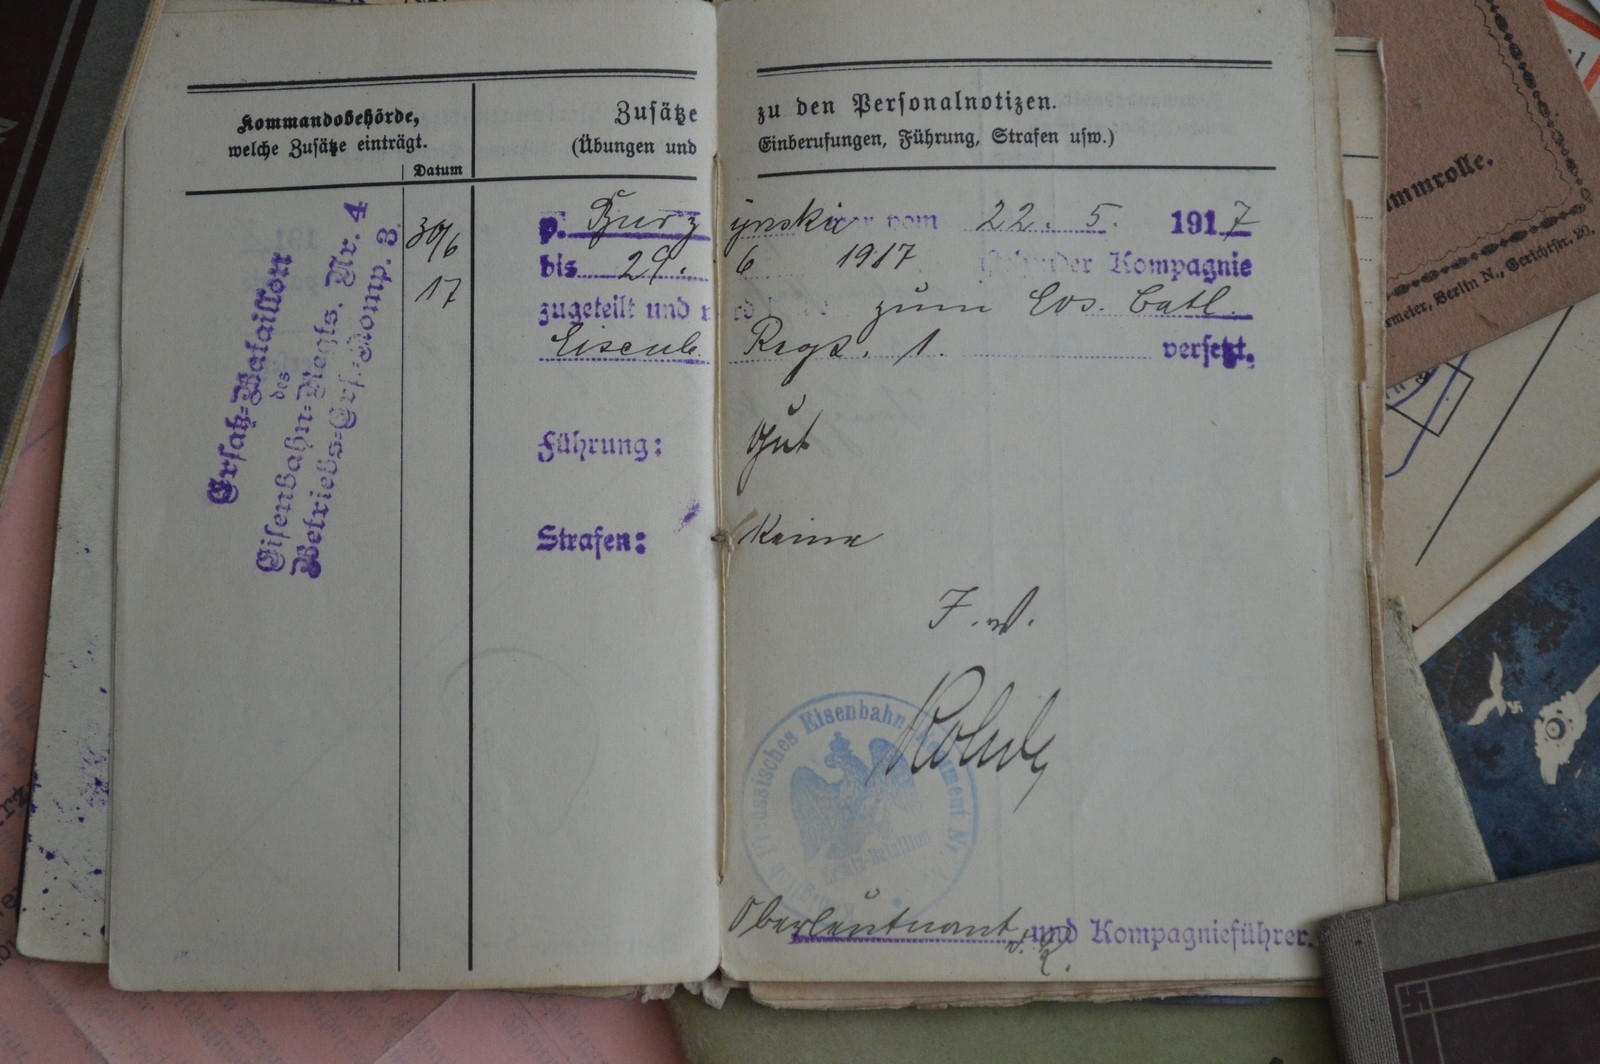 Kommandobehörde,
welche Zusätze einträgt.
Datum
Zusätze zu den Personalnotizen.
(Übungen und Einberufungen, Führung, Strafen usw.)
Ersatz=Bataillon
des
Eisenbahn=Regts. Nr. 4
Betriebs=Ers.=Komp. 3
30/6
17
p. vom 22. 5. 1917
bis 29. 6 1917 der Kompagnie
zugeteilt und zum Ers. Batl.
Eisenb. Regt. 1. versetzt.
Führung: Gut
Strafen: Keine
I. V.
Preussisches Eisenbahn Regiment Nr.
Ersatz-Bataillon
Oberleutnant und Kompagnieführer.
mmrolle.
rmeier, Berlin N., Gerichtstr. 20.